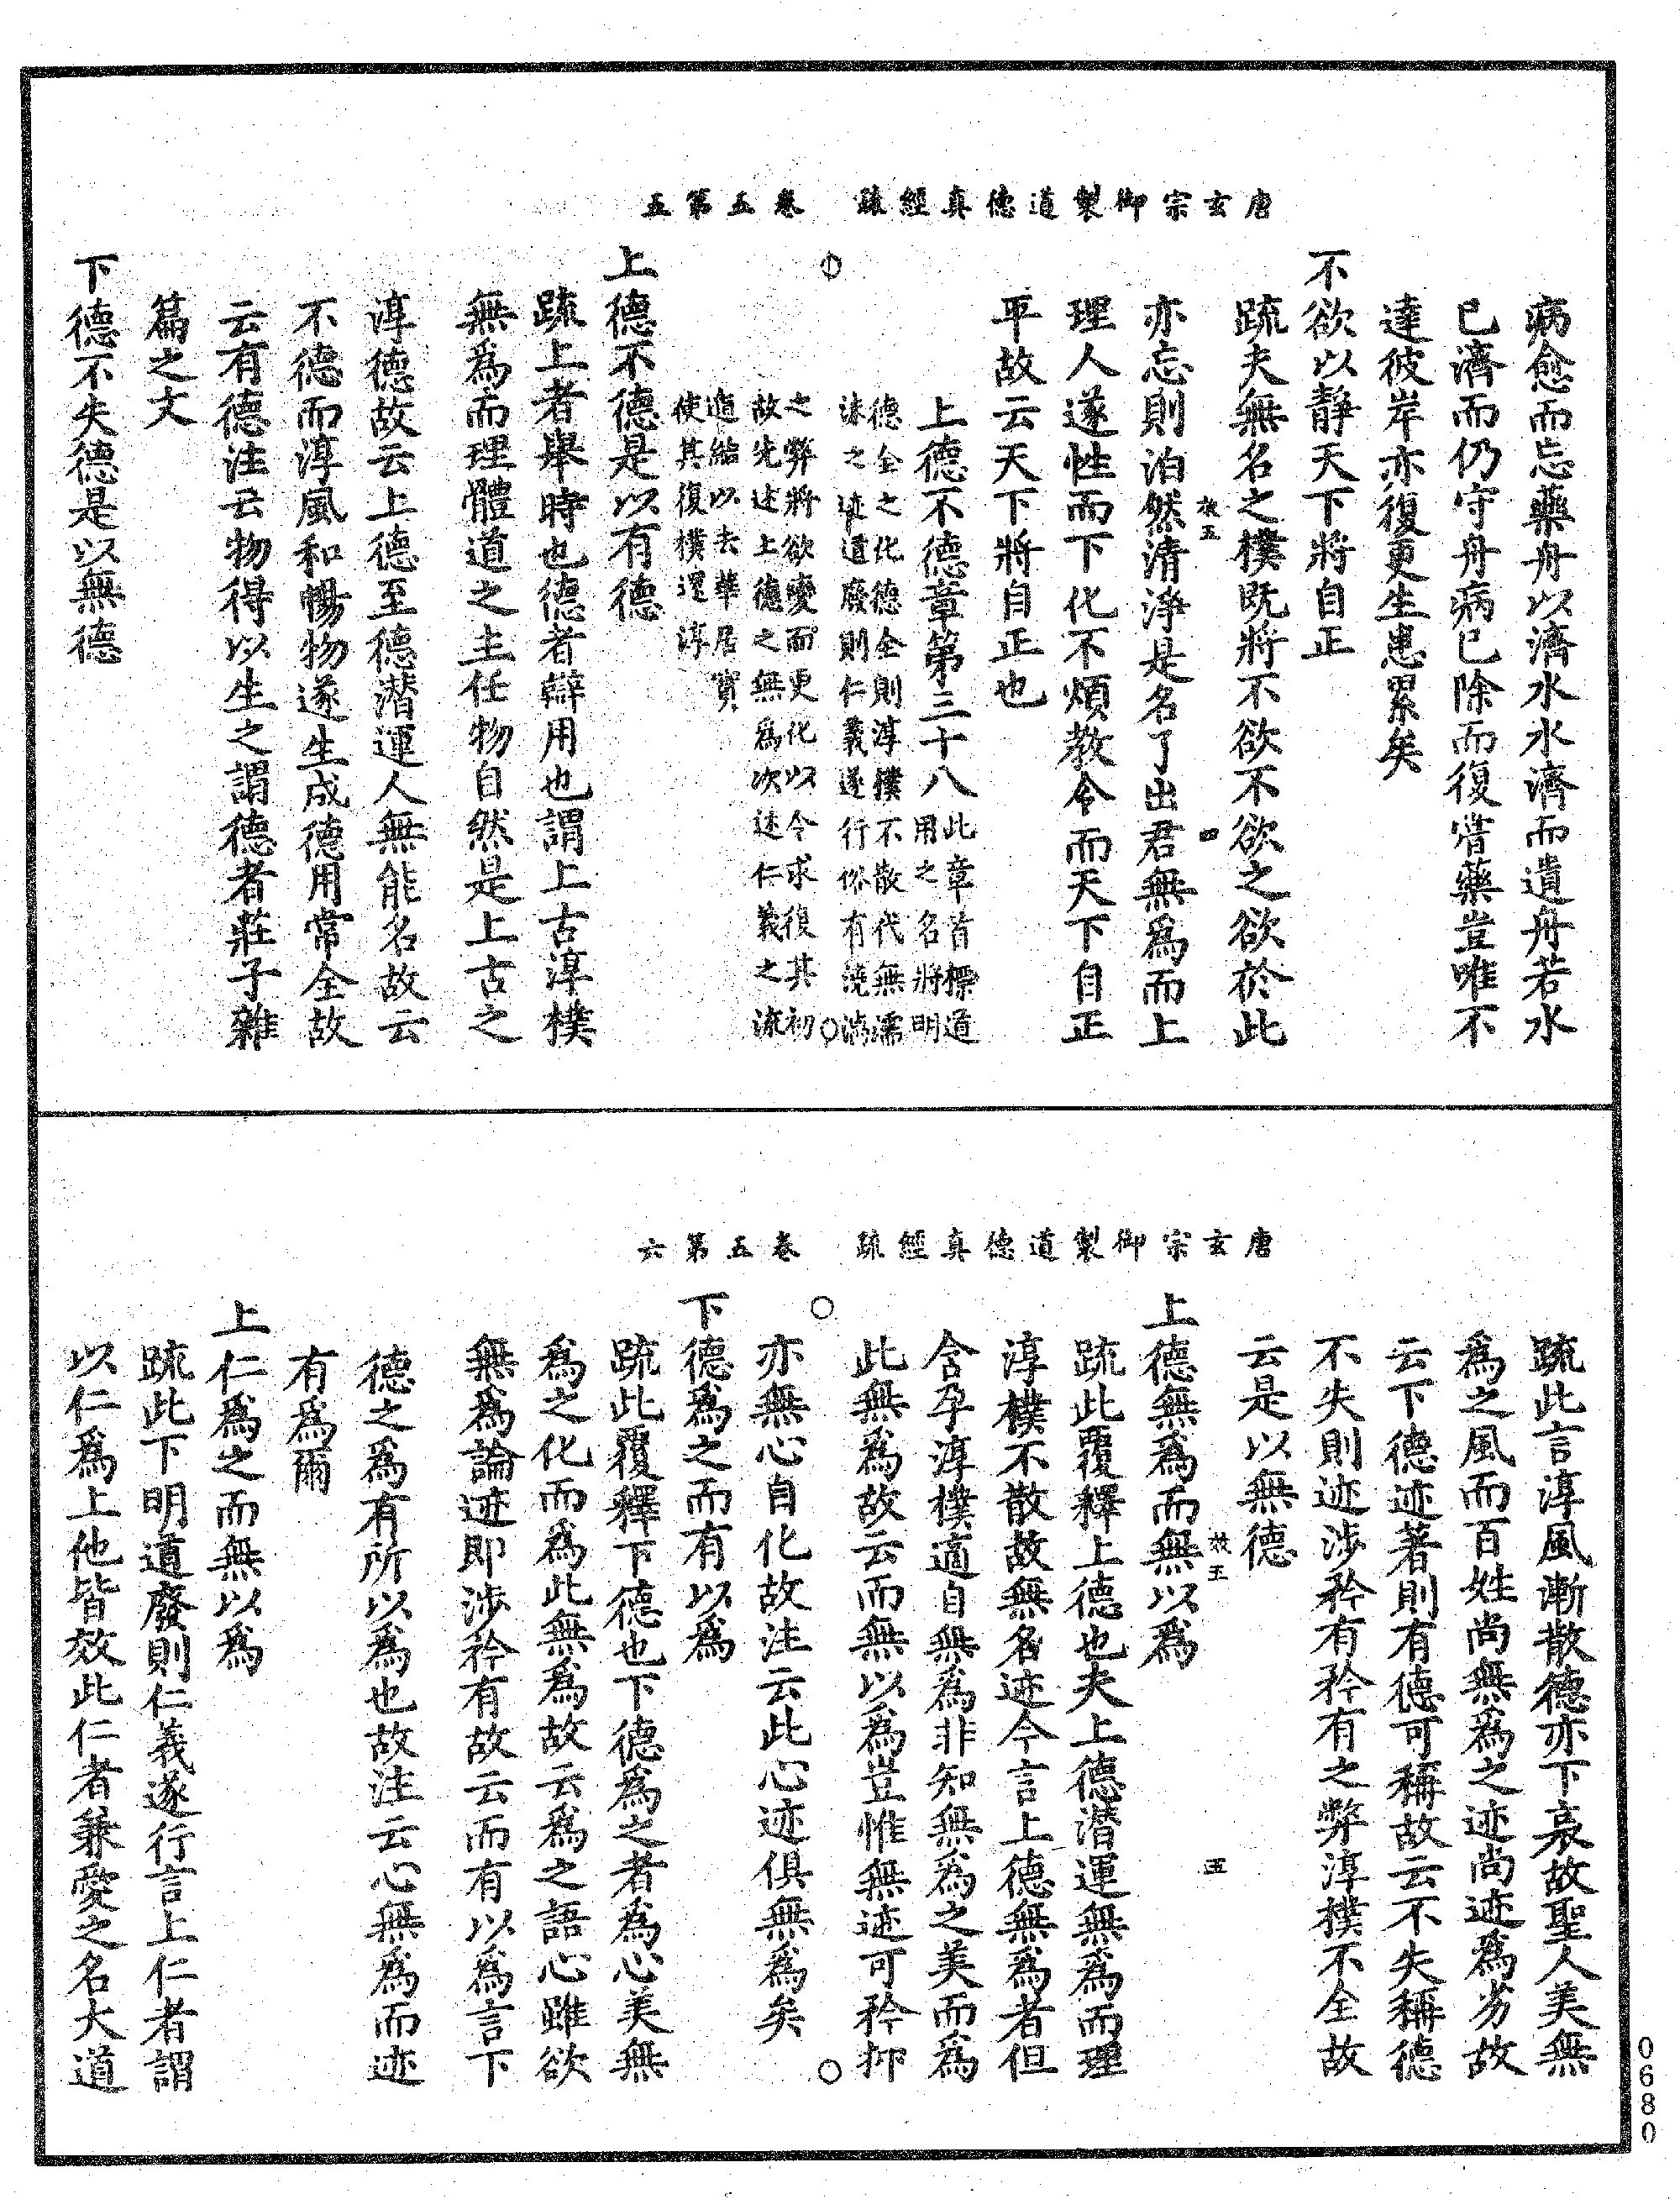 唐玄宗御製道德真經疏　卷五第五
病愈而忘藥舟以濟水水濟而遺舟若水
已濟而仍守舟病已除而復㫺藥豈唯不
達彼岸亦復更生患累矣
不欲以靜天下將自正
疏夫無名之樸既將不欲不欲之欲於此
亦忘則泊然清淨是名了出君無爲而上
理人遂性而下化不煩教令而天下自正
平故云天下將自正也
上德不德章第三十八
此章首標道
用之名將明
德全之化德全則淳樸不散代無濡
沫之迹道廢則仁義遂行俗有澆漓
之弊將欲變而更化以今求復其初
故先述上德之無爲次述仁義之流
遁給以去華居實
使其復樸還淳
上德不德是以有德
疏上者舉時也德者辯用也謂上古淳樸
無爲而理體道之主任物自然是上古之
淳德故云上德至德潛運人無能名故云
不德而淳風和暢物遂生成德用常全故
云有德注云物得以生之謂德者莊子雜
篇之文
下德不失德是以無德
唐玄宗御製道德真經疏　卷五第六
疏此言淳風漸散德亦下衰故聖人美無
爲之風而百姓尚無爲之迹尚迹爲劣故
云下德迹著則有德可稱故云不失稱德
不失則迹涉矜有矜有之弊淳樸不全故
云是以無德
上德無爲而無以爲
疏此覆釋上德也夫上德潛運無爲而理
淳樸不散故無名迹今言上德無爲者但
含孕淳樸適自無爲非知無爲之美而爲
此無爲故云而無以爲豈惟無迹可矜抑
亦無心自化故注云此心迹俱無爲矣
下德爲之而有以爲
疏此覆釋下德也下德爲之者爲心美無
爲之化而爲此無爲故云爲之語心雖欲
無爲論迹即涉矜有故云而有以爲言下
德之爲有所以爲也故注云心無爲而迹
有爲爾
上仁爲之而無以爲
疏此下明道廢則仁義遂行言上仁者謂
以仁爲上他皆效此仁者兼愛之名大道
0680